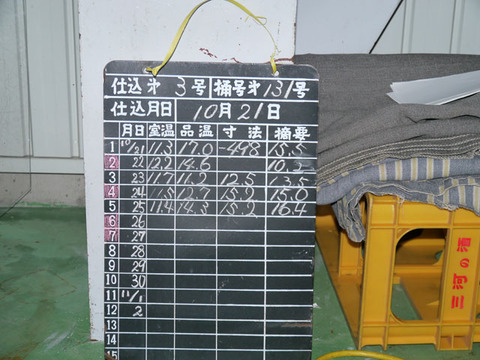 仕込オ 3号 桶号オ131号
仕込月日 10月21日
月日 室温 品温 寸法 摘要
1 10/21 11.3 17.0 -498 15.5
2 22 12.2 14.6 10.2
3 23 11.7 11.2 12.5 13.5
4 24 11.5 12.7 15.2 15.0
5 25 11.4 14.3 15.2 16.4
6 26
7 27
8 28
9 29
10 30
11 11/1
12 2
13
14
15
三河の酒